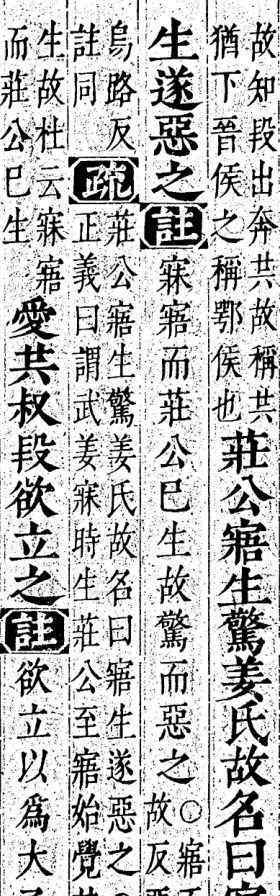 故知段出奔共故稱共
猶下晉侯之稱鄂侯也
莊公寤生驚姜氏故名曰
生遂惡之註寐寤而莊公已生故驚而惡之○寤
故反
烏路反
註同
疏莊公寤生驚姜氏故名曰寤生遂惡之
正義曰謂武姜寐時生莊公至寤始覺
生故杜云寐寤
而莊公已生
愛共叔段欲立之註欲立以爲大